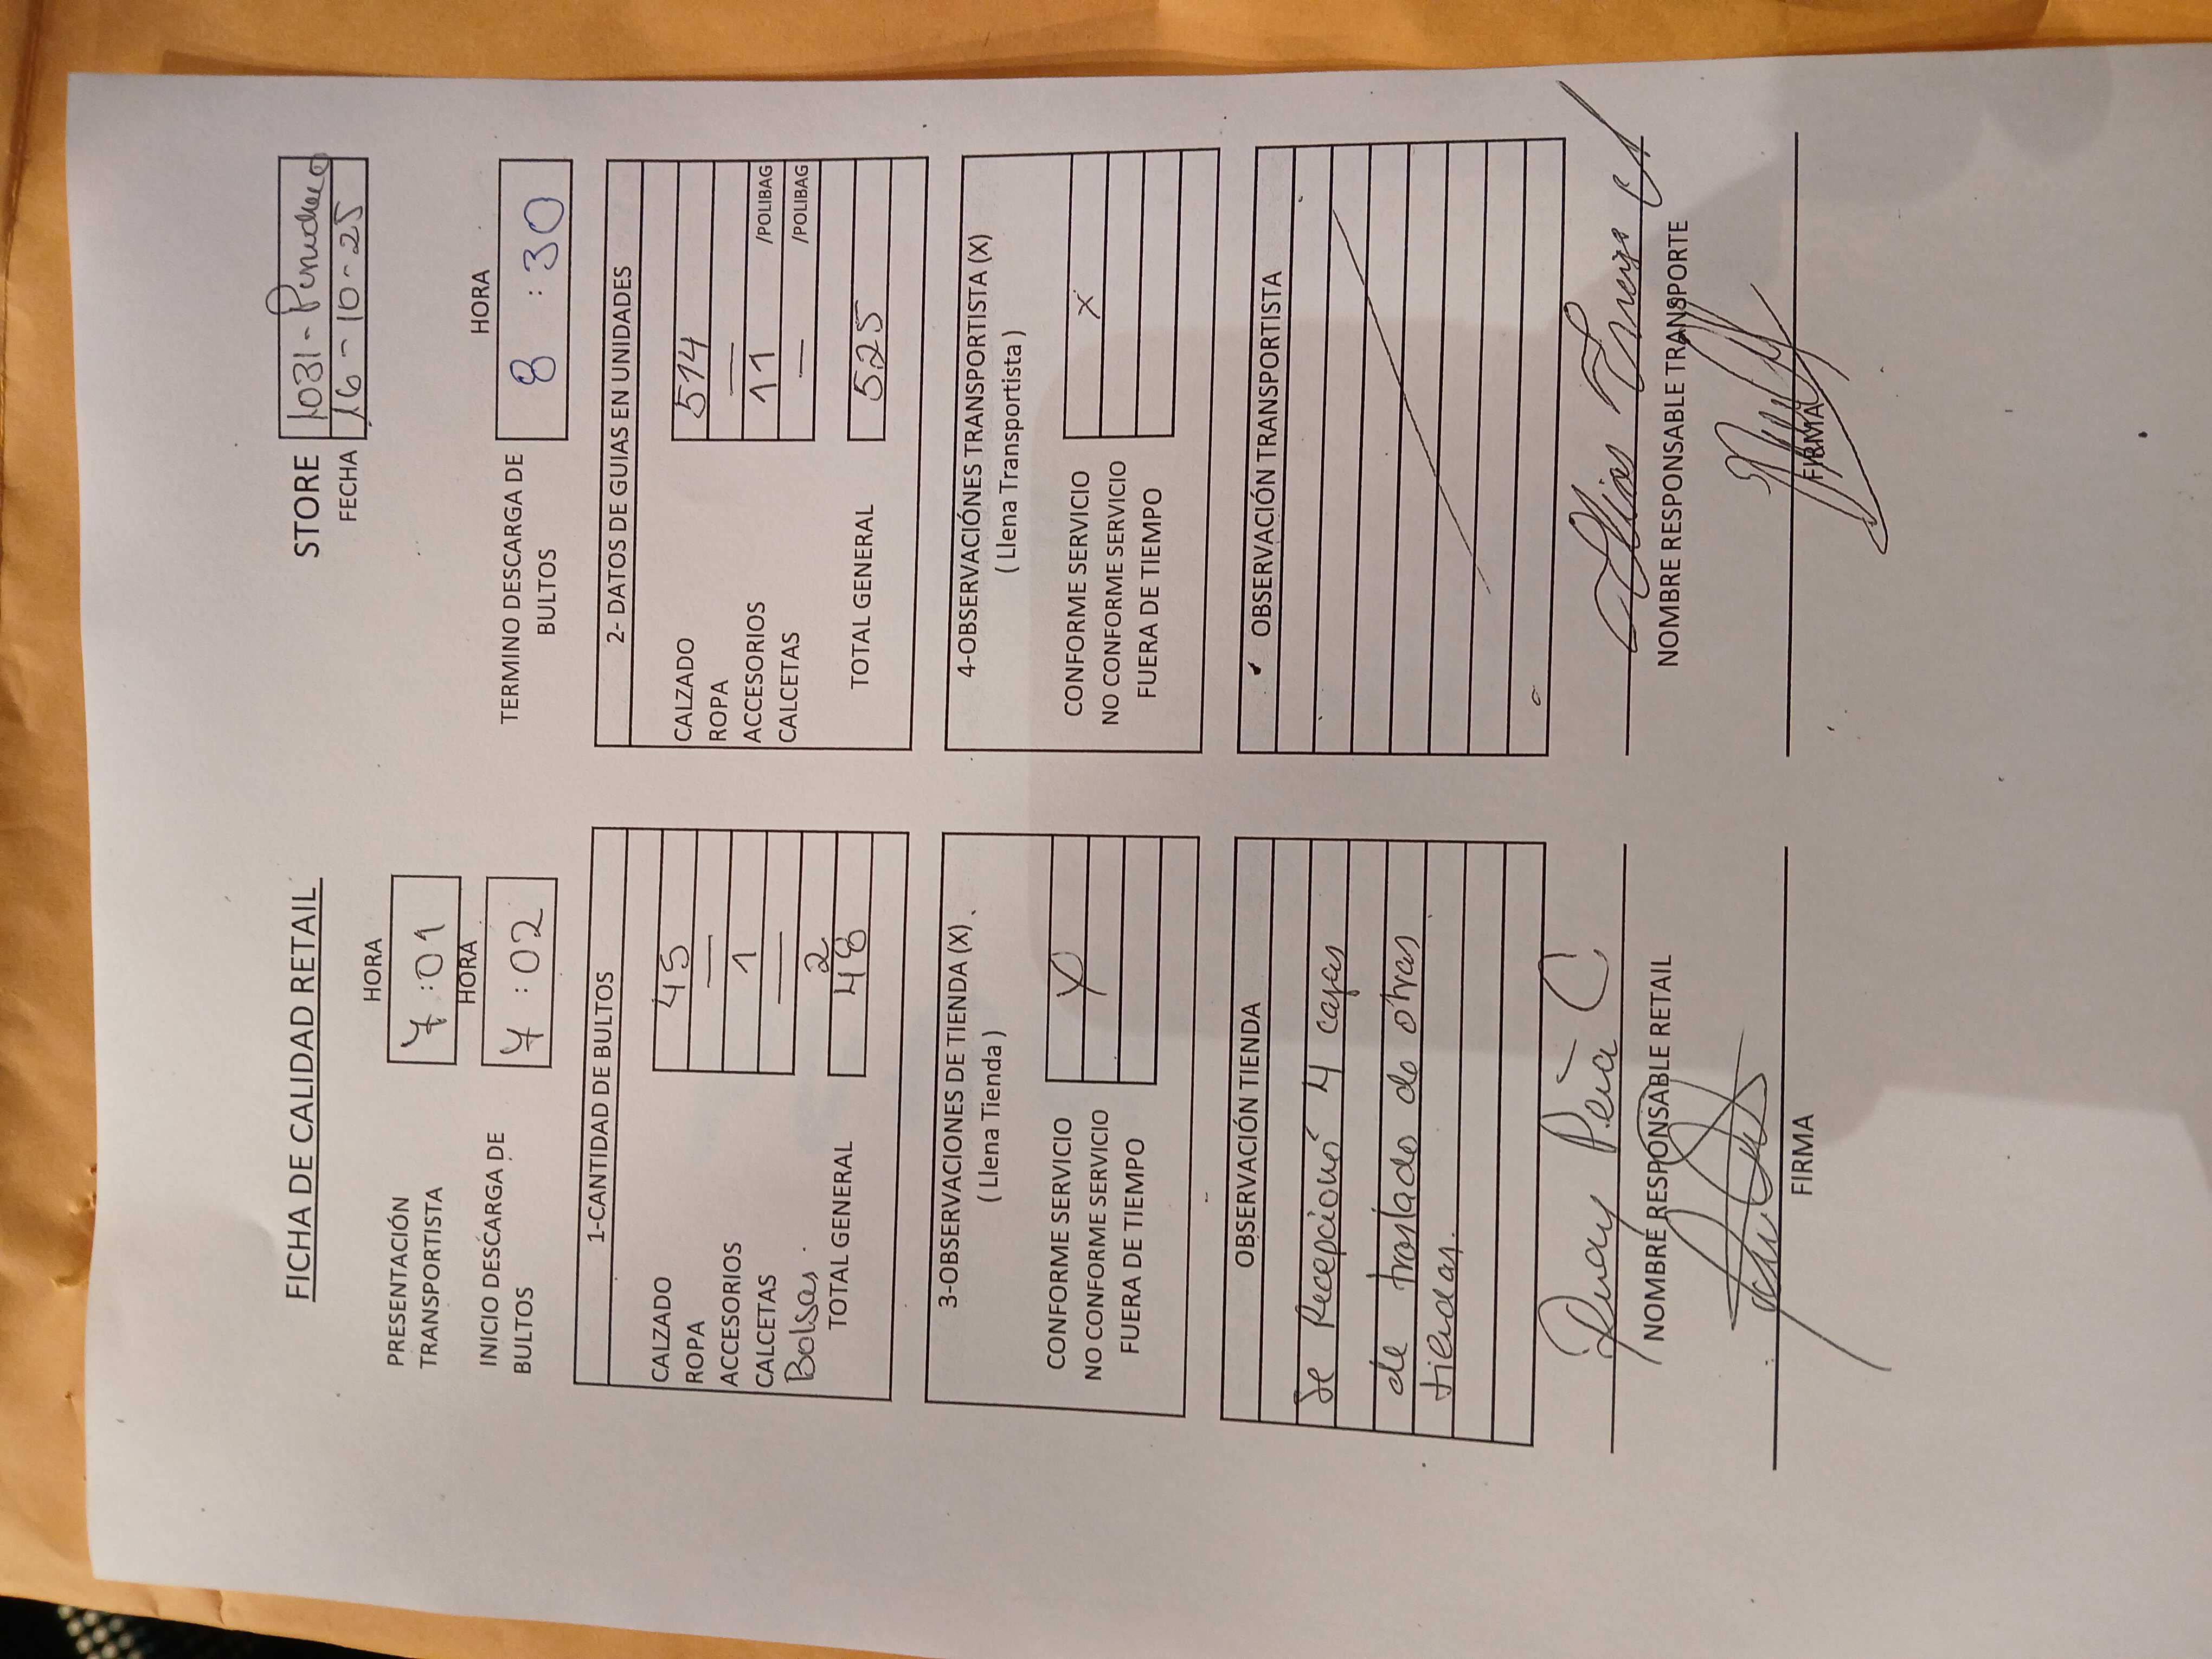 FICHA DE CALIDAD RETAIL
STORE 1031-
FECHA 16-10-25
PRESENTACIÓN TRANSPORTISTA
HORA
7:01
INICIO DESCARGA DE BULTOS
HORA
7:02
TERMINO DESCARGA DE BULTOS
HORA
8:30
1-CANTIDAD DE BULTOS
CALZADO 45
ROPA —
ACCESORIOS 1
CALCETAS —
Bolsas. 2
TOTAL GENERAL 48
2- DATOS DE GUIAS EN UNIDADES
CALZADO 514
ROPA —
ACCESORIOS 11 /POLIBAG
CALCETAS — /POLIBAG
TOTAL GENERAL 525
3-OBSERVACIONES DE TIENDA (X)
( Llena Tienda )
CONFORME SERVICIO X
NO CONFORME SERVICIO
FUERA DE TIEMPO
4-OBSERVACIÓNES TRANSPORTISTA (X)
( Llena Transportista )
CONFORME SERVICIO X
NO CONFORME SERVICIO
FUERA DE TIEMPO
OBSERVACIÓN TIENDA
Se Recepcionó 4 cajas
de traslado de otras
tiendas.
OBSERVACIÓN TRANSPORTISTA
Peña C
NOMBRE RESPONSABLE RETAIL
FIRMA
Elias
NOMBRE RESPONSABLE TRANSPORTE
FIRMA